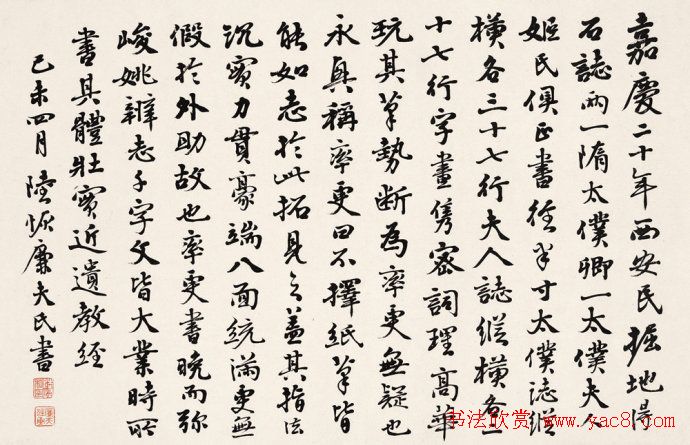 嘉慶二十年西安民掘地得
石誌兩一隋太僕卿一太僕夫人
姬氏俱正書徑半寸太僕誌縱
橫各三十七行夫人誌縱橫各二
十七行字畫俊密詞理高華
玩其筆勢斷為率更無疑也
永真稱率更曰不擇紙筆皆
能如志於此拓見之蓋其指法
沉實力貫豪端八面統滿更無
假於外助故也率更書晚而彌
峻姚辯志千字文皆大業時所
書其體壯實近遺教經
己未四月陸恢廉夫氏書
书法欣赏 www.yac8.com